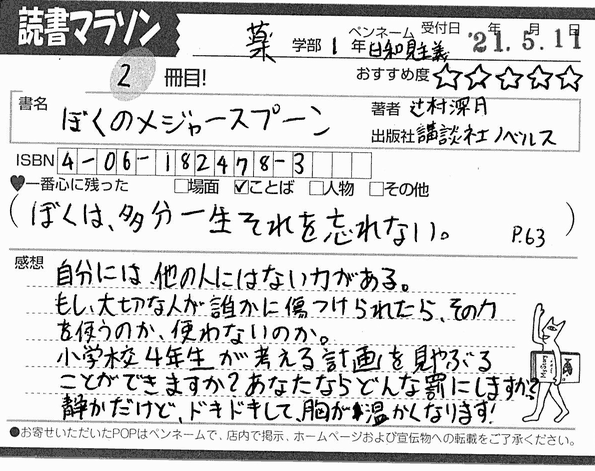 読書マラソン
薬 学部 1年 ペンネーム 日和見主義 受付日 '21.5.11 年 月 日
2 冊目! おすすめ度 ☆☆☆☆☆
書名 ぼくのメジャースプーン 著者 辻村深月
出版社 講談社ノベルス
ISBN 4-06-182478-3
♥一番心に残った □場面 ☑ことば □人物 □その他
(ぼくは、多分一生それを忘れない。 P.63)
感想 自分には、他の人にはない力がある。
もし、大切な人が誰かに傷つけられたら、その力
を使うのか、使わないのか。
小学校4年生が考える計画を見やぶる
ことができますか?あなたならどんな罰にしますか?
静かだけど、ドキドキして、胸が温かくなります!
●お寄せいただいたPOPはペンネームで、店内で掲示、ホームページおよび宣伝物への転載をご了承ください。